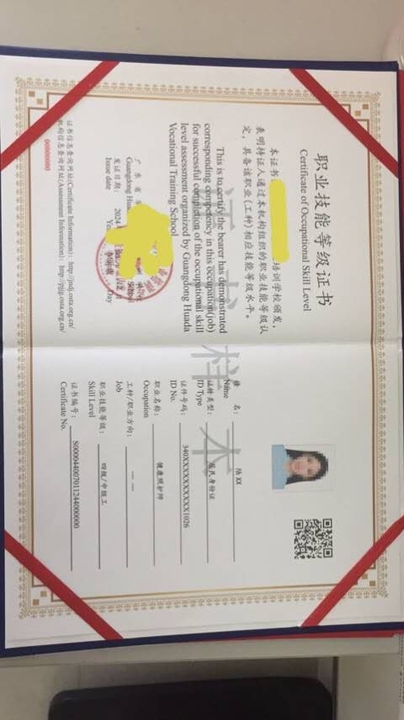 职业技能等级证书
Certificate of Occupational Skill Level
本证书
培训学校颁发,
表明持证人通过本机构组织的职业技能等级认
定,具备该职业(工种)相应技能等级水平。
This is to certify the bearer has demonstrated
corresponding competency in this occupation(job)
for successful completion of the occupational skill
level assessment organized by Guangdong Huada
Vocational Training School
广东省
Guangdong Hua
发证日期: 2024
Issue date
证书信息查询网址(Certificate Information): http://jndj.osta.org.cn/
机构信息查询网址(Assessment Information): http://pjjg.osta.org.cn/
00000000
证书样本
姓名: 陈XX
Name
证件类型: 居民身份证
ID Type
证件号码: 340XXXXXXXXXX1026
ID No.
职业名称: 健康照护师
Occupation
工种/职业方向: ——
Job
职业技能等级: 四级/中级工
Skill Level
证书编号: S000044007011244000000
Certificate No.